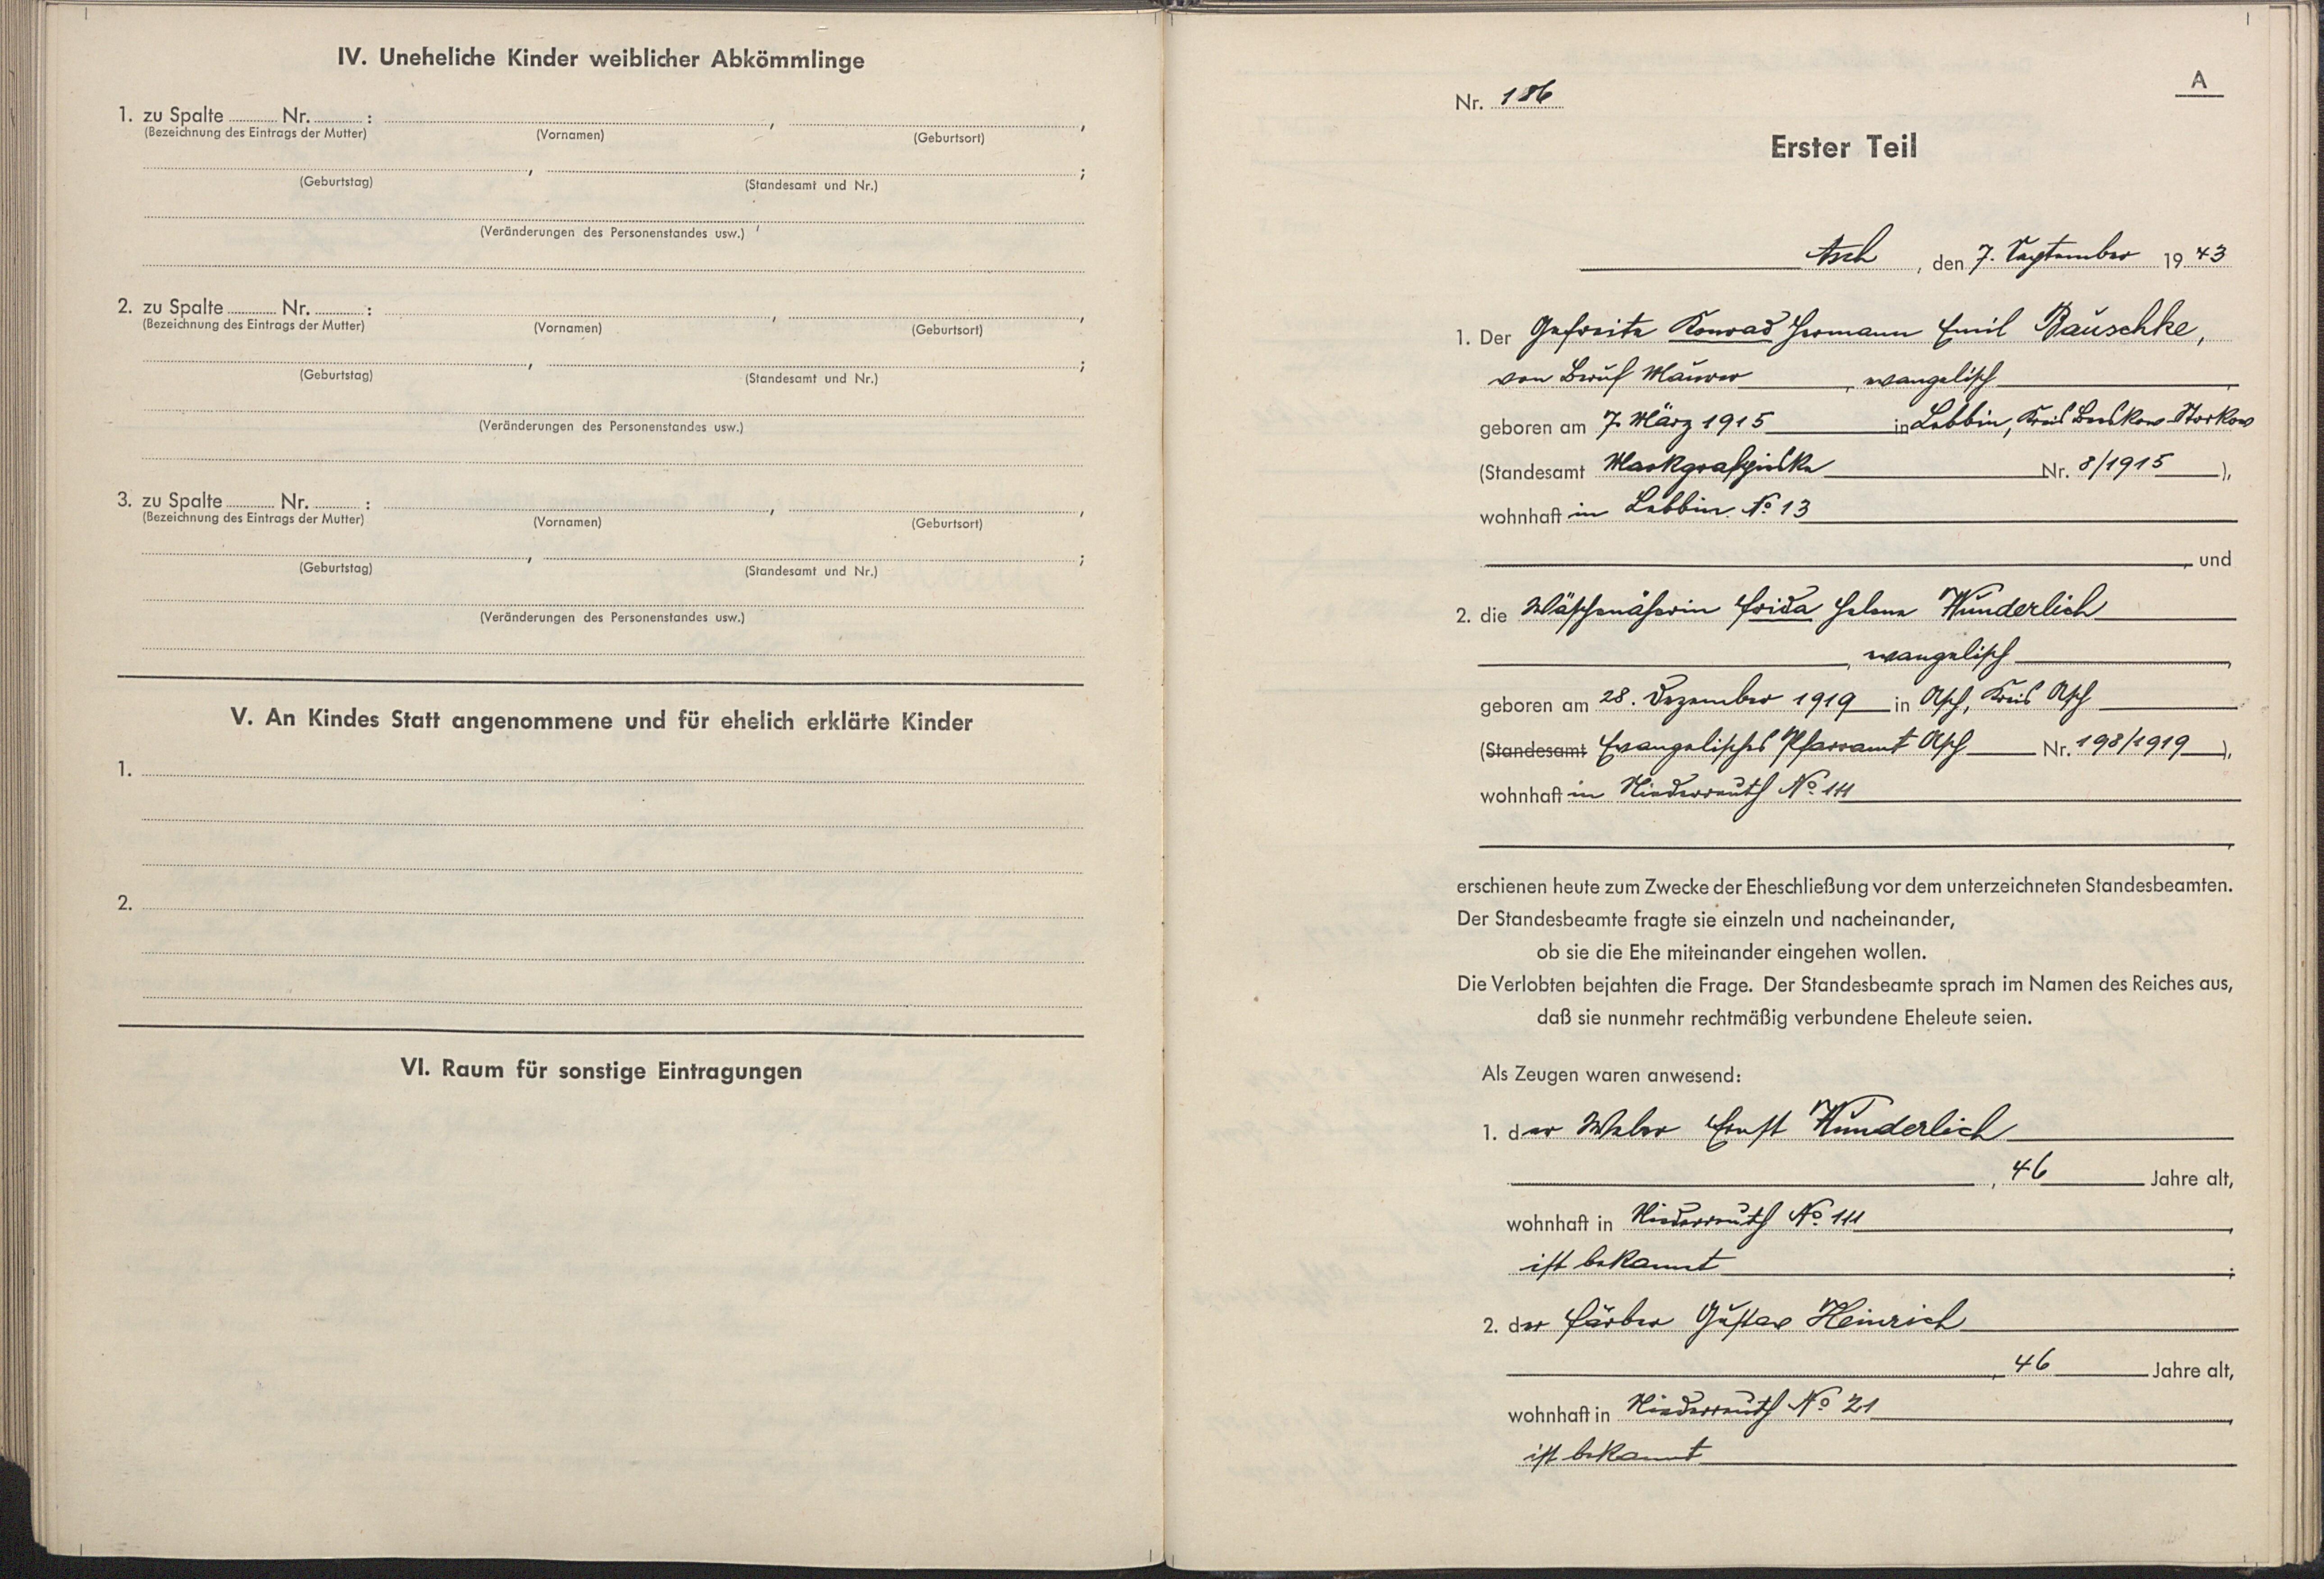 IV. Uneheliche Kinder weiblicher Abkömmlinge
1. zu Spalte ........ Nr. ........ : ........ , ........ ,
(Bezeichnung des Eintrags der Mutter) (Vornamen) (Geburtsort)
........ , ........ ;
(Geburtstag) (Standesamt und Nr.)
(Veränderungen des Personenstandes usw.)
2. zu Spalte ........ Nr. ........ : ........ , ........ ,
(Bezeichnung des Eintrags der Mutter) (Vornamen) (Geburtsort)
........ , ........ ;
(Geburtstag) (Standesamt und Nr.)
(Veränderungen des Personenstandes usw.)
3. zu Spalte ........ Nr. ........ : ........ , ........ ,
(Bezeichnung des Eintrags der Mutter) (Vornamen) (Geburtsort)
........ , ........ ;
(Geburtstag) (Standesamt und Nr.)
(Veränderungen des Personenstandes usw.)
V. An Kindes Statt angenommene und für ehelich erklärte Kinder
1.
2.
VI. Raum für sonstige Eintragungen
A
Nr. 186
Erster Teil
Asch, den 7. September 1943
1. Der Gefreite Konrad Hermann Emil Bauschke,
von Beruf Maurer, evangelisch,
geboren am 7. März 1915 in Lebbin, Kreis Beeskow-Storkow
(Standesamt Markgrafpieske Nr. 8/1915),
wohnhaft in Lebbin No 13
, und
2. die Wäschenäherin Frida Helene Wunderlich
, evangelisch,
geboren am 28. Dezember 1919 in Asch, Kreis Asch
(Standesamt Evangelisches Pfarramt Asch Nr. 198/1919),
wohnhaft in Niederreuth No 111
,
erschienen heute zum Zwecke der Eheschließung vor dem unterzeichneten Standesbeamten.
Der Standesbeamte fragte sie einzeln und nacheinander,
ob sie die Ehe miteinander eingehen wollen.
Die Verlobten bejahten die Frage. Der Standesbeamte sprach im Namen des Reiches aus,
daß sie nunmehr rechtmäßig verbundene Eheleute seien.
Als Zeugen waren anwesend:
1. der Weber Ernst Wunderlich
, 46 Jahre alt,
wohnhaft in Niederreuth No 111,
ist bekannt;
2. der Färber Gustav Heinrich
, 46 Jahre alt,
wohnhaft in Niederreuth No 21,
ist bekannt